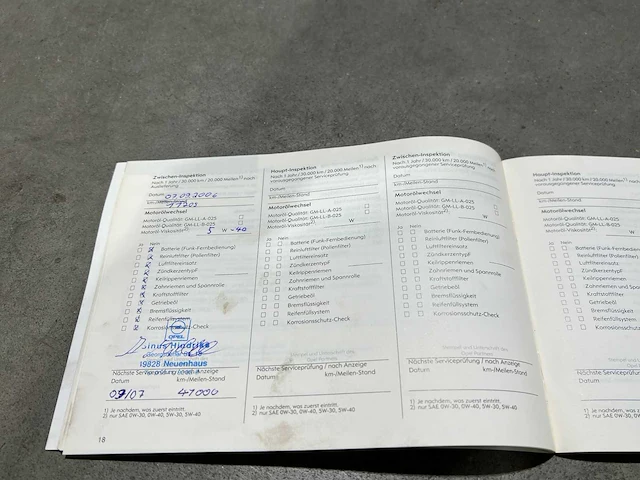 Zwischen-Inspektion
Nach 1 Jahr/30.000 km/20.000 Meilen1) nach
Auslieferung
Datum 07.09.2006
km-/Meilen-Stand
Motorölwechsel
Motoröl-Qualität: GM-LL-A-025
Motoröl-Qualität: GM-LL-B-025
Motoröl-Viskosität2): 5 W -40
Ja Nein
Batterie (Funk-Fernbedienung)
Reinluftfilter (Pollenfilter)
Luftfiltereinsatz
Zündkerzentyp
Keilrippenriemen
Zahnriemen und Spannrolle
Kraftstofffilter
Getriebeöl
Bremsflüssigkeit
Reifenfüllsystem
Korrosionsschutz-Check
OPEL
Hindriks
49828 Neuenhaus
Nächste Serviceprüfung / nach Anzeige
Datum km-/Meilen-Stand
09/07 47000
1) Je nachdem, was zuerst eintritt.
2) nur SAE 0W-30, 0W-40, 5W-30, 5W-40
18
Haupt-Inspektion
Nach 1 Jahr/30.000 km/20.000 Meilen1) nach
vorausgegangener Serviceprüfung
Datum
km-/Meilen-Stand
Motorölwechsel
Motoröl-Qualität: GM-LL-A-025
Motoröl-Qualität: GM-LL-B-025
Motoröl-Viskosität2): W
Ja Nein
Batterie (Funk-Fernbedienung)
Reinluftfilter (Pollenfilter)
Luftfiltereinsatz
Zündkerzentyp
Keilrippenriemen
Zahnriemen und Spannrolle
Kraftstofffilter
Getriebeöl
Bremsflüssigkeit
Reifenfüllsystem
Korrosionsschutz-Check
Stempel und Unterschrift des
Opel Partners
Nächste Serviceprüfung / nach Anzeige
Datum km-/Meilen-Stand
1) Je nachdem, was zuerst eintritt.
2) nur SAE 0W-30, 0W-40, 5W-30, 5W-40
Zwischen-Inspektion
Nach 1 Jahr/30.000 km/20.000 Meilen1) nach
vorausgegangener Serviceprüfung
Datum
km-/Meilen-Stand
Motorölwechsel
Motoröl-Qualität: GM-LL-A-025
Motoröl-Qualität: GM-LL-B-025
Motoröl-Viskosität2): W
Ja Nein
Batterie (Funk-Fernbedienung)
Reinluftfilter (Pollenfilter)
Luftfiltereinsatz
Zündkerzentyp
Keilrippenriemen
Zahnriemen und Spannrolle
Kraftstofffilter
Getriebeöl
Bremsflüssigkeit
Reifenfüllsystem
Korrosionsschutz-Check
Stempel und Unterschrift des
Opel Partners
Nächste Serviceprüfung / nach Anzeige
Datum km-/Meilen-Stand
1) Je nachdem, was zuerst eintritt.
2) nur SAE 0W-30, 0W-40, 5W-30, 5W-40
Haupt-Inspektion
Nach 1 Jahr/30.000 km/20.000
vorausgegangener Serviceprüfung
Datum
km-/Meilen-Stand
Motorölwechsel
Motoröl-Qualität: GM-LL-A-025
Motoröl-Qualität: GM-LL-B-025
Motoröl-Viskosität2):
Ja Nein
Batterie
Reinluftfilter
Luftfiltereinsatz
Zündkerzentyp
Keilrippenriemen
Zahnriemen
Kraftstofffilter
Getriebeöl
Bremsflüssigkeit
Nächste Serviceprüfung
Datum
1) Je nachdem, was zuerst eintritt.
2) nur SAE 0W-30, 0W-40,